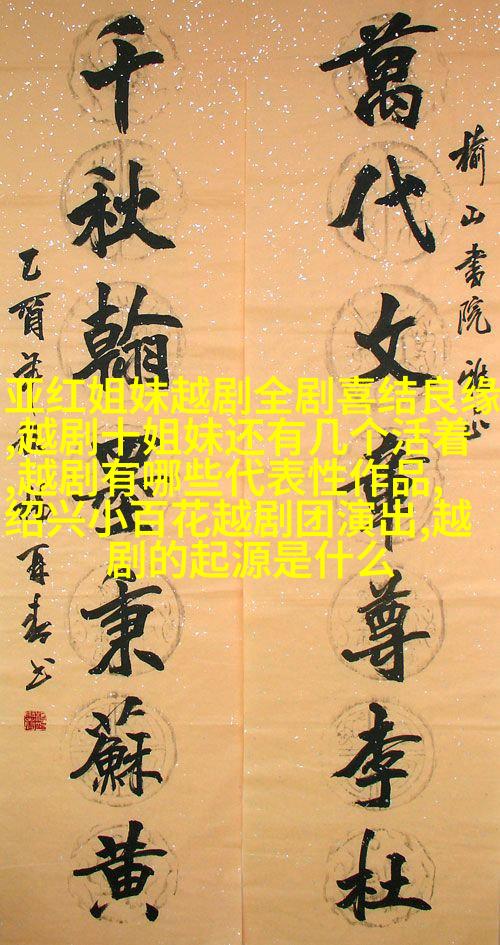 榆山書院雅正
萬代文章尊李杜
千秋翰墨秉蘇黄
乙酉
再春书
亚红姐妹越剧全剧喜结良缘
,越剧十姐妹还有几个活着
,越剧有哪些代表性作品,
绍兴小百花越剧团演出,越
剧的起源是什么